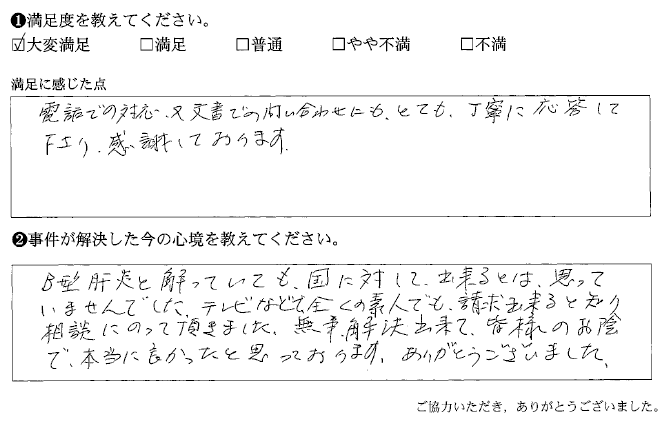 ❶満足度を教えてください。
☑大変満足 □満足 □普通 □やや不満 □不満
満足に感じた点
電話での対応、又文書での問い合わせにも、とても、丁寧に応答して
下さり、感謝しております。
❷事件が解決した今の心境を教えてください。
B型肝炎と解っていても、国に対して、出来るとは、思って
いませんでした、テレビなどで全くの素人でも、請求出来ると知り
相談にのって頂きました、無事、解決出来て、皆様のお陰
で、本当に良かったと思っております。ありがとうございました。
ご協力いただき、ありがとうございました。